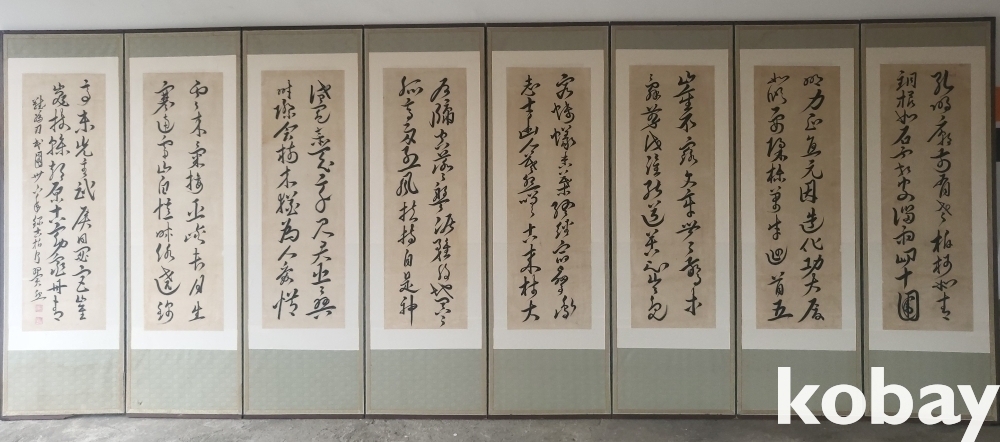 孔明廟前有老柏柯如青
銅根如石霜皮溜雨四十圍
明力正直元因造化功大廈
如傾要梁棟萬牛迴首丘
山重不露文章世已驚未
辭翦伐誰能送苦心豈免
容螻蟻香葉終經宿鸞鳳
志士幽人莫怨嗟古來材大
戶牖空落落盤踞雖得地冥冥
孤高多烈風扶持自是神
黛色參天二千尺君臣已與
時際會樹木猶為人愛惜
雲來氣接巫峽長月出
寒通雪山白憶昨路繞錦
亭東先主武侯同閟宮崔
嵬枝幹郊原古窈窕丹青
難為用
kobay